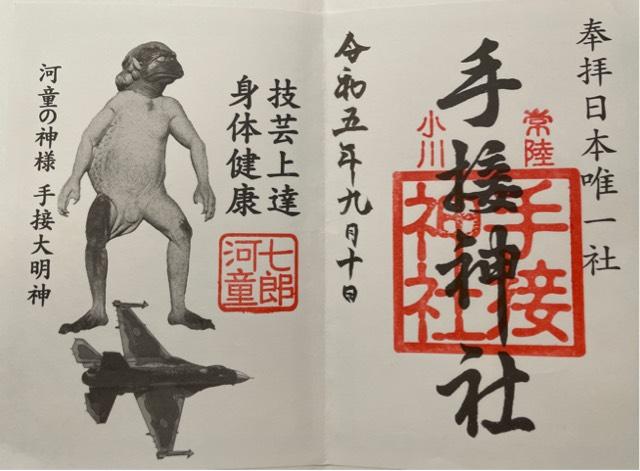 奉拝日本唯一社
常陸
小川
手接神社
手接
神社
令和五年九月十日
技芸上達
身体健康
七郎
河童
河童の神様 手接大明神